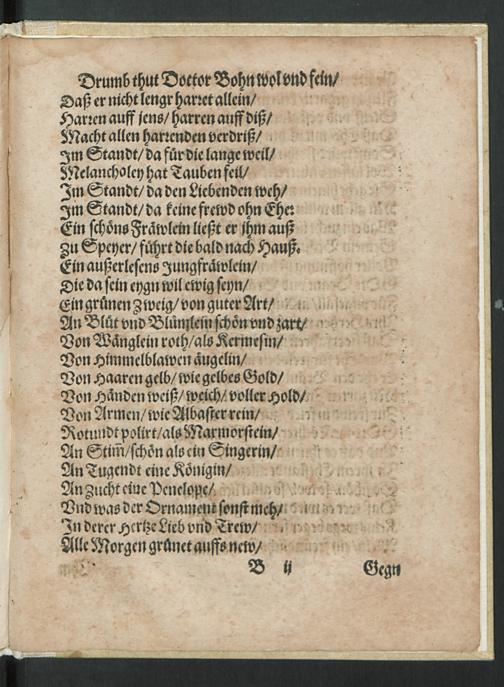 Drumb thut Doctor Bohn wol vnd fein/
Daß er nicht lengr harret allein/
Harren auff jens/ harren auff diß/
Macht allen harrenden verdriß/
Im Standt/ da für die lange weil/
Melancholey hat Tauben feil/
Im Standt/ da den Liebenden weh/
Im Standt/ da keine frewd ohn Ehe:
Ein schöns Fräwlein ließt er jhm auß
Zu Speyer/ führt die bald nach Hauß.
Ein außerlesens Jungfräwlein/
Die da sein eygn wil ewig seyn/
Ein grünen Zweig/ von guter Art/
An Blüt vnd Blümlein schön vnd zart/
Von Wänglein roth/ als Kermesin/
Von Himmelblawen äugelin/
Von Haaren gelb/ wie gelbes Gold/
Von Händen weiß/ weich/ voller Hold/
Von Armen/ wie Albaster rein/
Rotundt polirt/ als Marmorstein/
An Stim̃/ schön als ein Singerin/
An Tugendt eine Königin/
An Zucht eine Penelope/
Vnd was der Ornament sonst meh/
In derer Hertze Lieb vnd Trew/
Alle Morgen grünet auffs new/
B ij Gegn